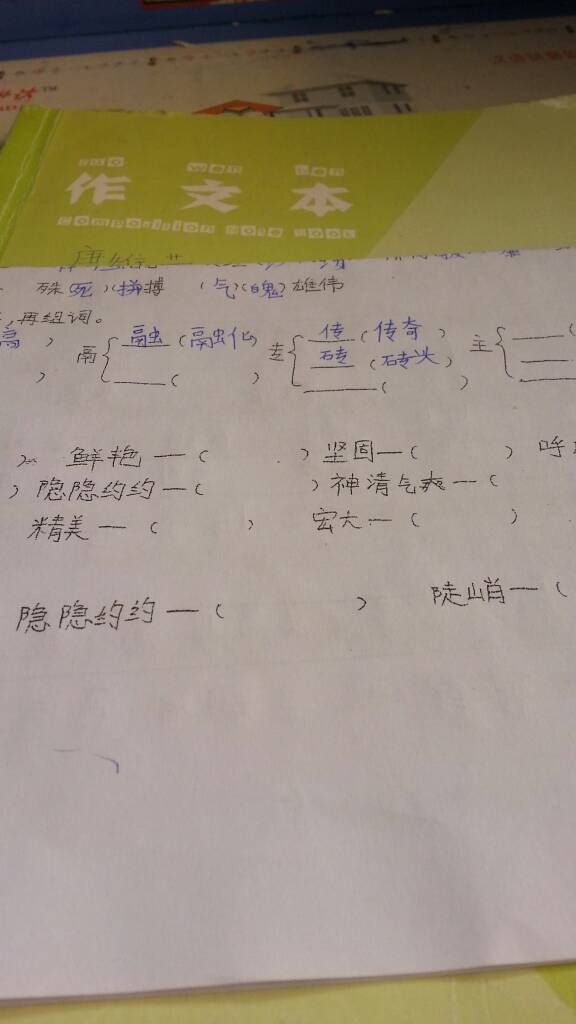 zuo wen ben
作文本
Composition Note Book
殊死)(拼搏 (气)(魄)雄伟
,再组词。
高 ) 鬲{ 融 (融化 专{ 传 (传奇 ) 主{ ____(
) ____( ) 砖 (砖头 ) ____
____( ) ____
) 鲜艳—( ) 坚固—( ) 呼
) 隐隐约约—( ) 神清气爽—(
精美—( ) 宏大—( )
隐隐约约—( ) 陡峭—(